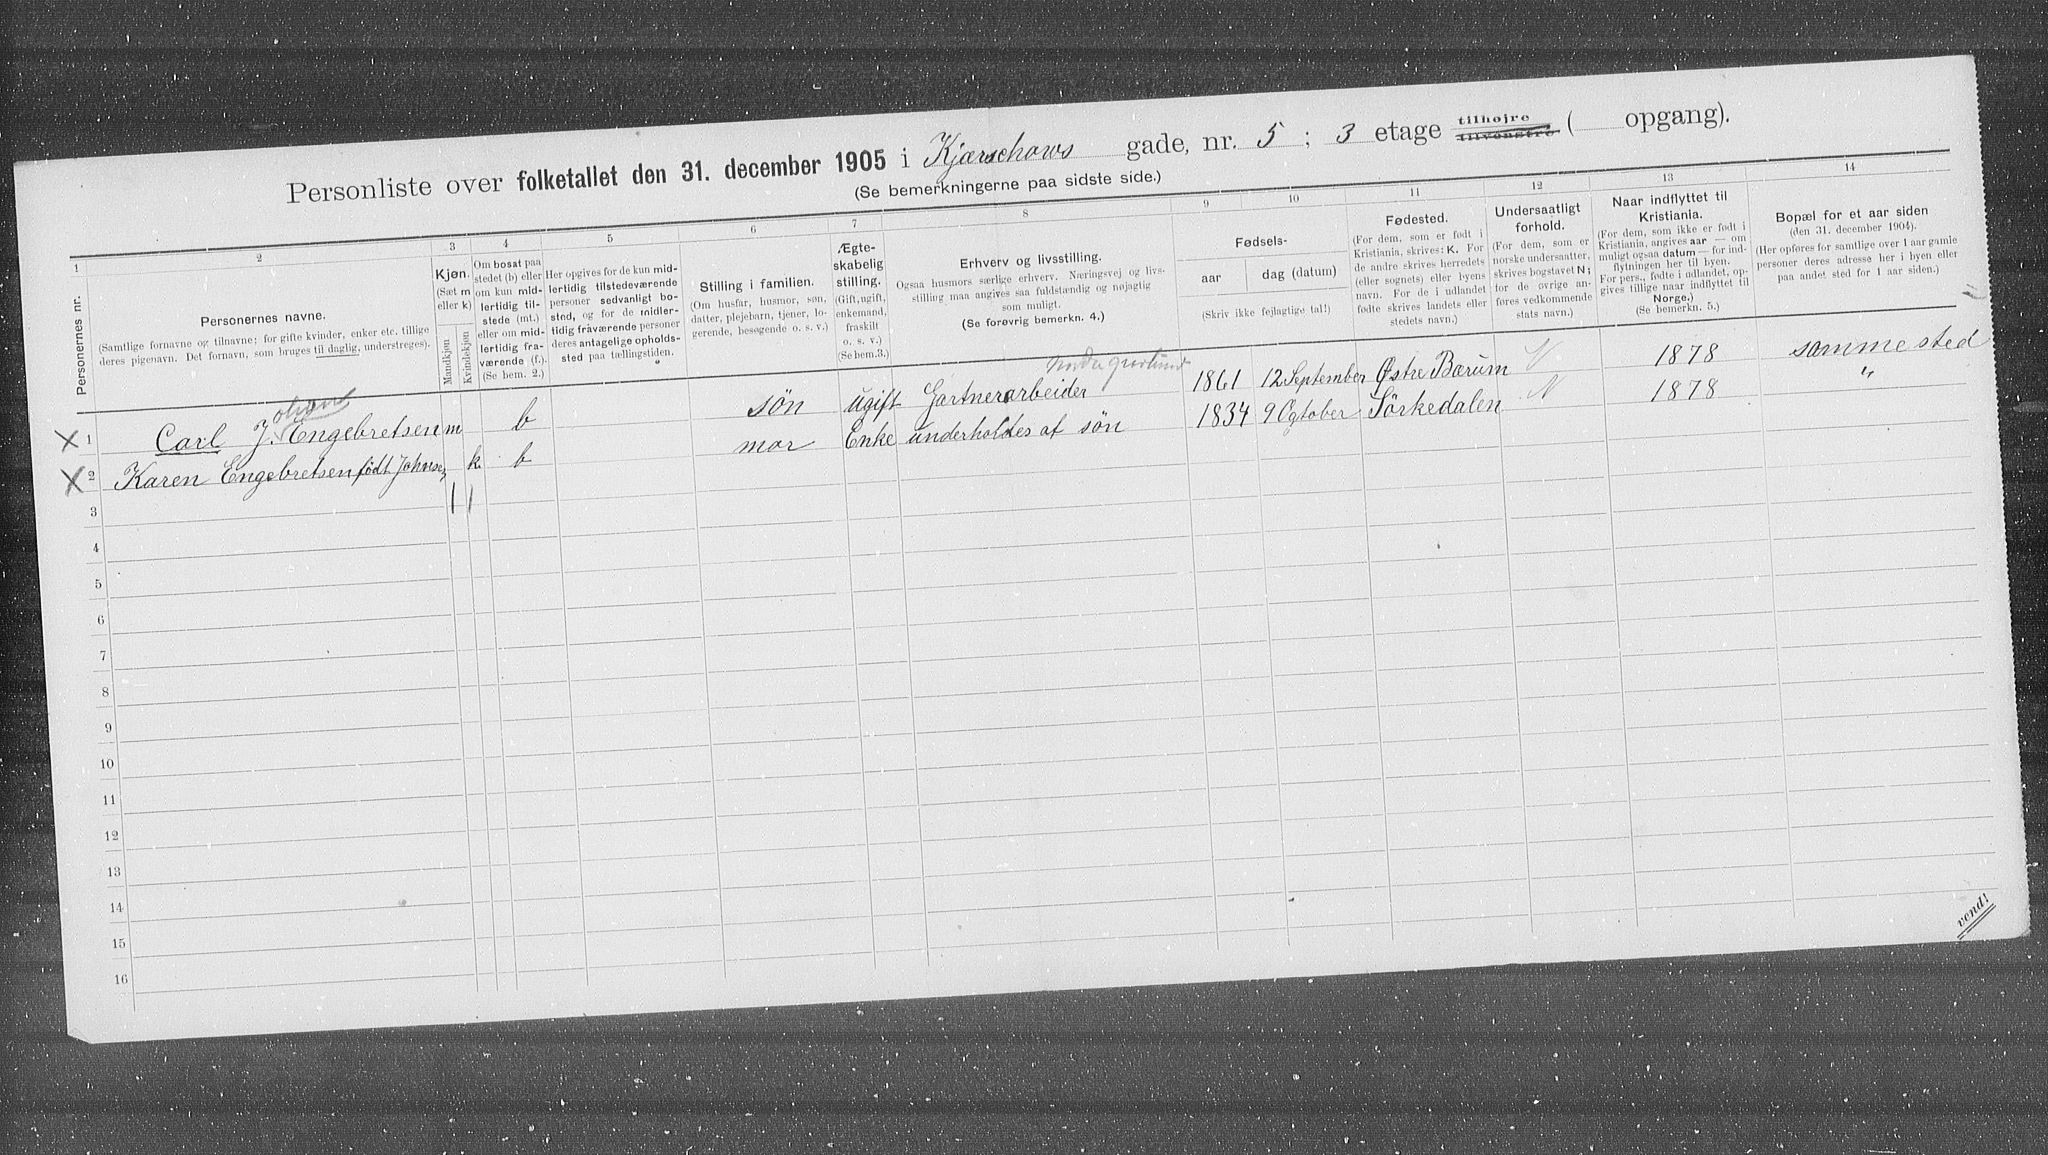 Personliste over folketallet den 31. december 1905 i Kjærschows gade, nr. 5 ; 3 etage tilhøjre tilvenstre ( opgang).
(Se bemerkningerne paa sidste side.)
1 2 3 4 5 6 7 8 9 10 11 12 13 14
Personernes nr.
Personernes navne.
(Samtlige fornavne og tilnavne; for gifte kvinder, enker etc. tillige
deres pigenavn. Det fornavn, som bruges til daglig, understreges).
Kjøn.
(Sæt m
eller k)
Mandkjøn
Kvindekjøn
Om bosat paa
stedet (b) eller
om kun mid-
lertidig til-
stede (mt.)
eller om mid-
lertidig fra-
værende (f.).
(Se bem. 2.)
Her opgives for de kun mid-
lertidig tilstedeværende
personer sedvanligt bo-
sted, og for de midler-
tidig fraværende personer
deres antagelige opholds-
sted paa tællingstiden.
Stilling i familien.
(Om husfar, husmor, søn,
datter, plejebarn, tjener, lo-
gerende, besøgende o. s. v.)
Ægte-
skabelig
stilling.
(Gift, ugift,
enkemand,
fraskilt
o. s. v.)
(Se bem.3.)
Erhverv og livsstilling.
Ogsaa husmors særlige erhverv. Næringsvej og livs-
stilling maa angives saa fuldstændig og nøjagtig
som muligt.
(Se forøvrig bemerkn. 4.)
Fødsels-
aar dag (datum)
(Skriv ikke fejlagtige tal!)
Fødested.
(For dem, som er født i
Kristiania, skrives: K. For
de andre skrives herredets
(eller sognets) eller byens
navn. For de i udlandet
fødte skrives landets eller
stedets navn.)
Undersaatligt
forhold.
(For dem, som er
norske undersaatter,
skrives bogstavet N;
for de øvrige an-
føres vedkommende
stats navn.)
Naar indflyttet til
Kristiania.
(For dem, som ikke er født i
Kristiania, angives aar — om
muligt ogsaa datum — for ind-
flytningen her til byen.
For pers., fødte i udlandet, op-
gives tillige naar indflyttet til
Norge.)
(Se bemerkn. 5.)
Bopæl for et aar siden
(den 31. december 1904).
(Her opføres for samtlige over 1 aar gamle
personer deres adresse her i byen eller
paa andet sted for 1 aar siden.)
X 1 Carl J. Engebretsen m b søn ugift Gartnerarbeider 1861 12 September Østre Bærum N 1878 samme sted
X 2 Karen Engebretsen født Johnsen k. b mor Enke underholdes af søn 1834 9 Ogtober Sørkedalen N 1878 "
3
4
5
6
7
8
9
10
11
12
13
14
15
16
vend!